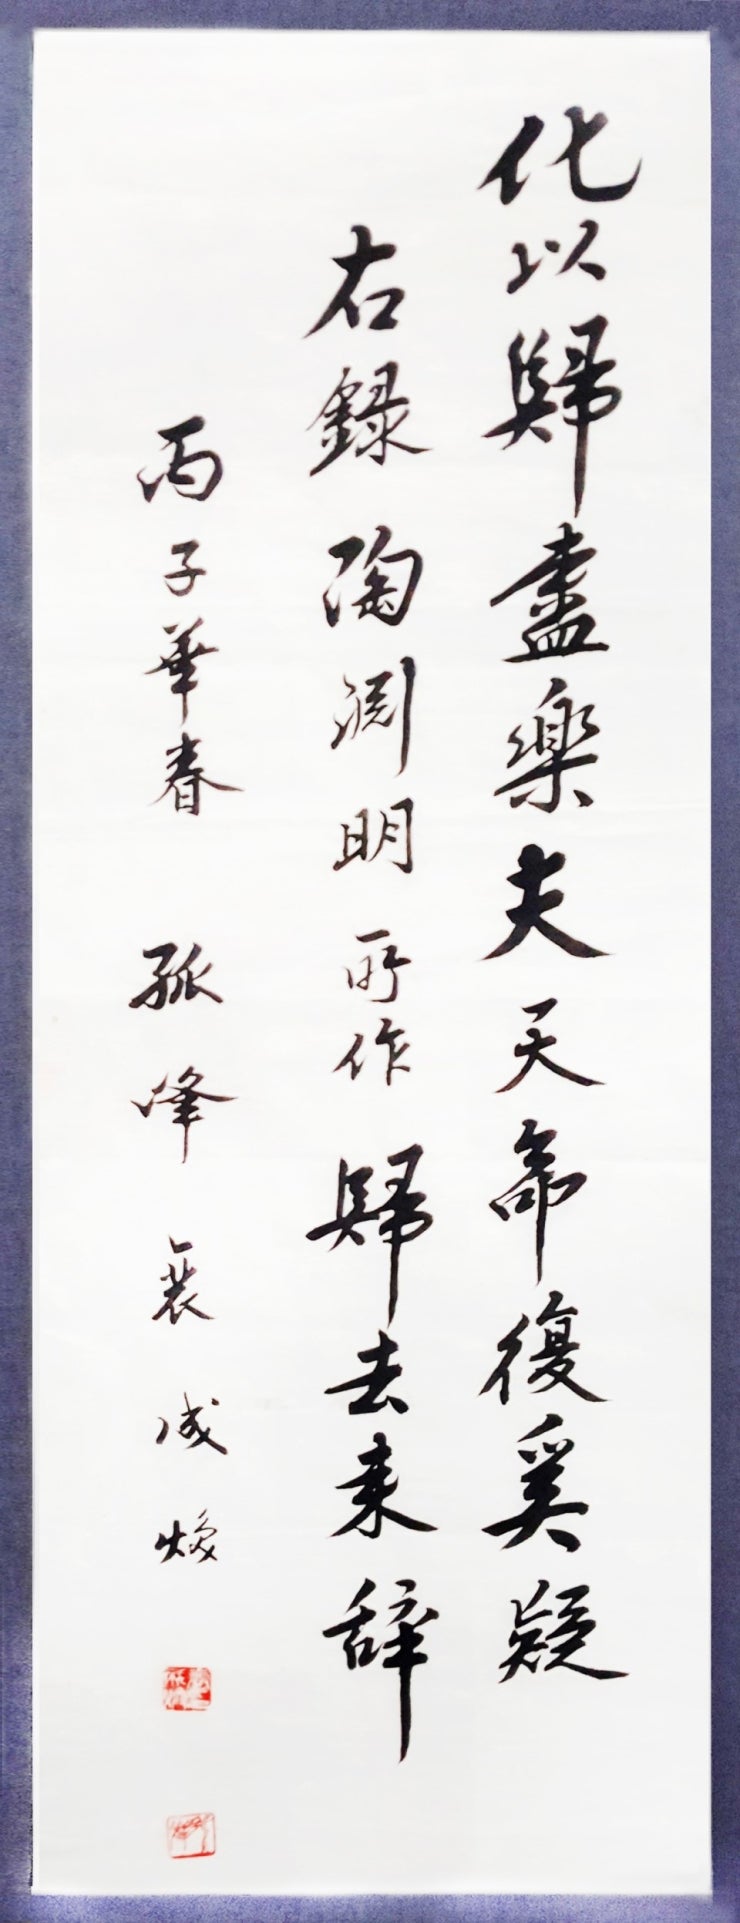 化以歸盡樂夫天命復奚疑
右錄陶淵明所作歸去来辞
丙子華春 孤峰 裵成煥